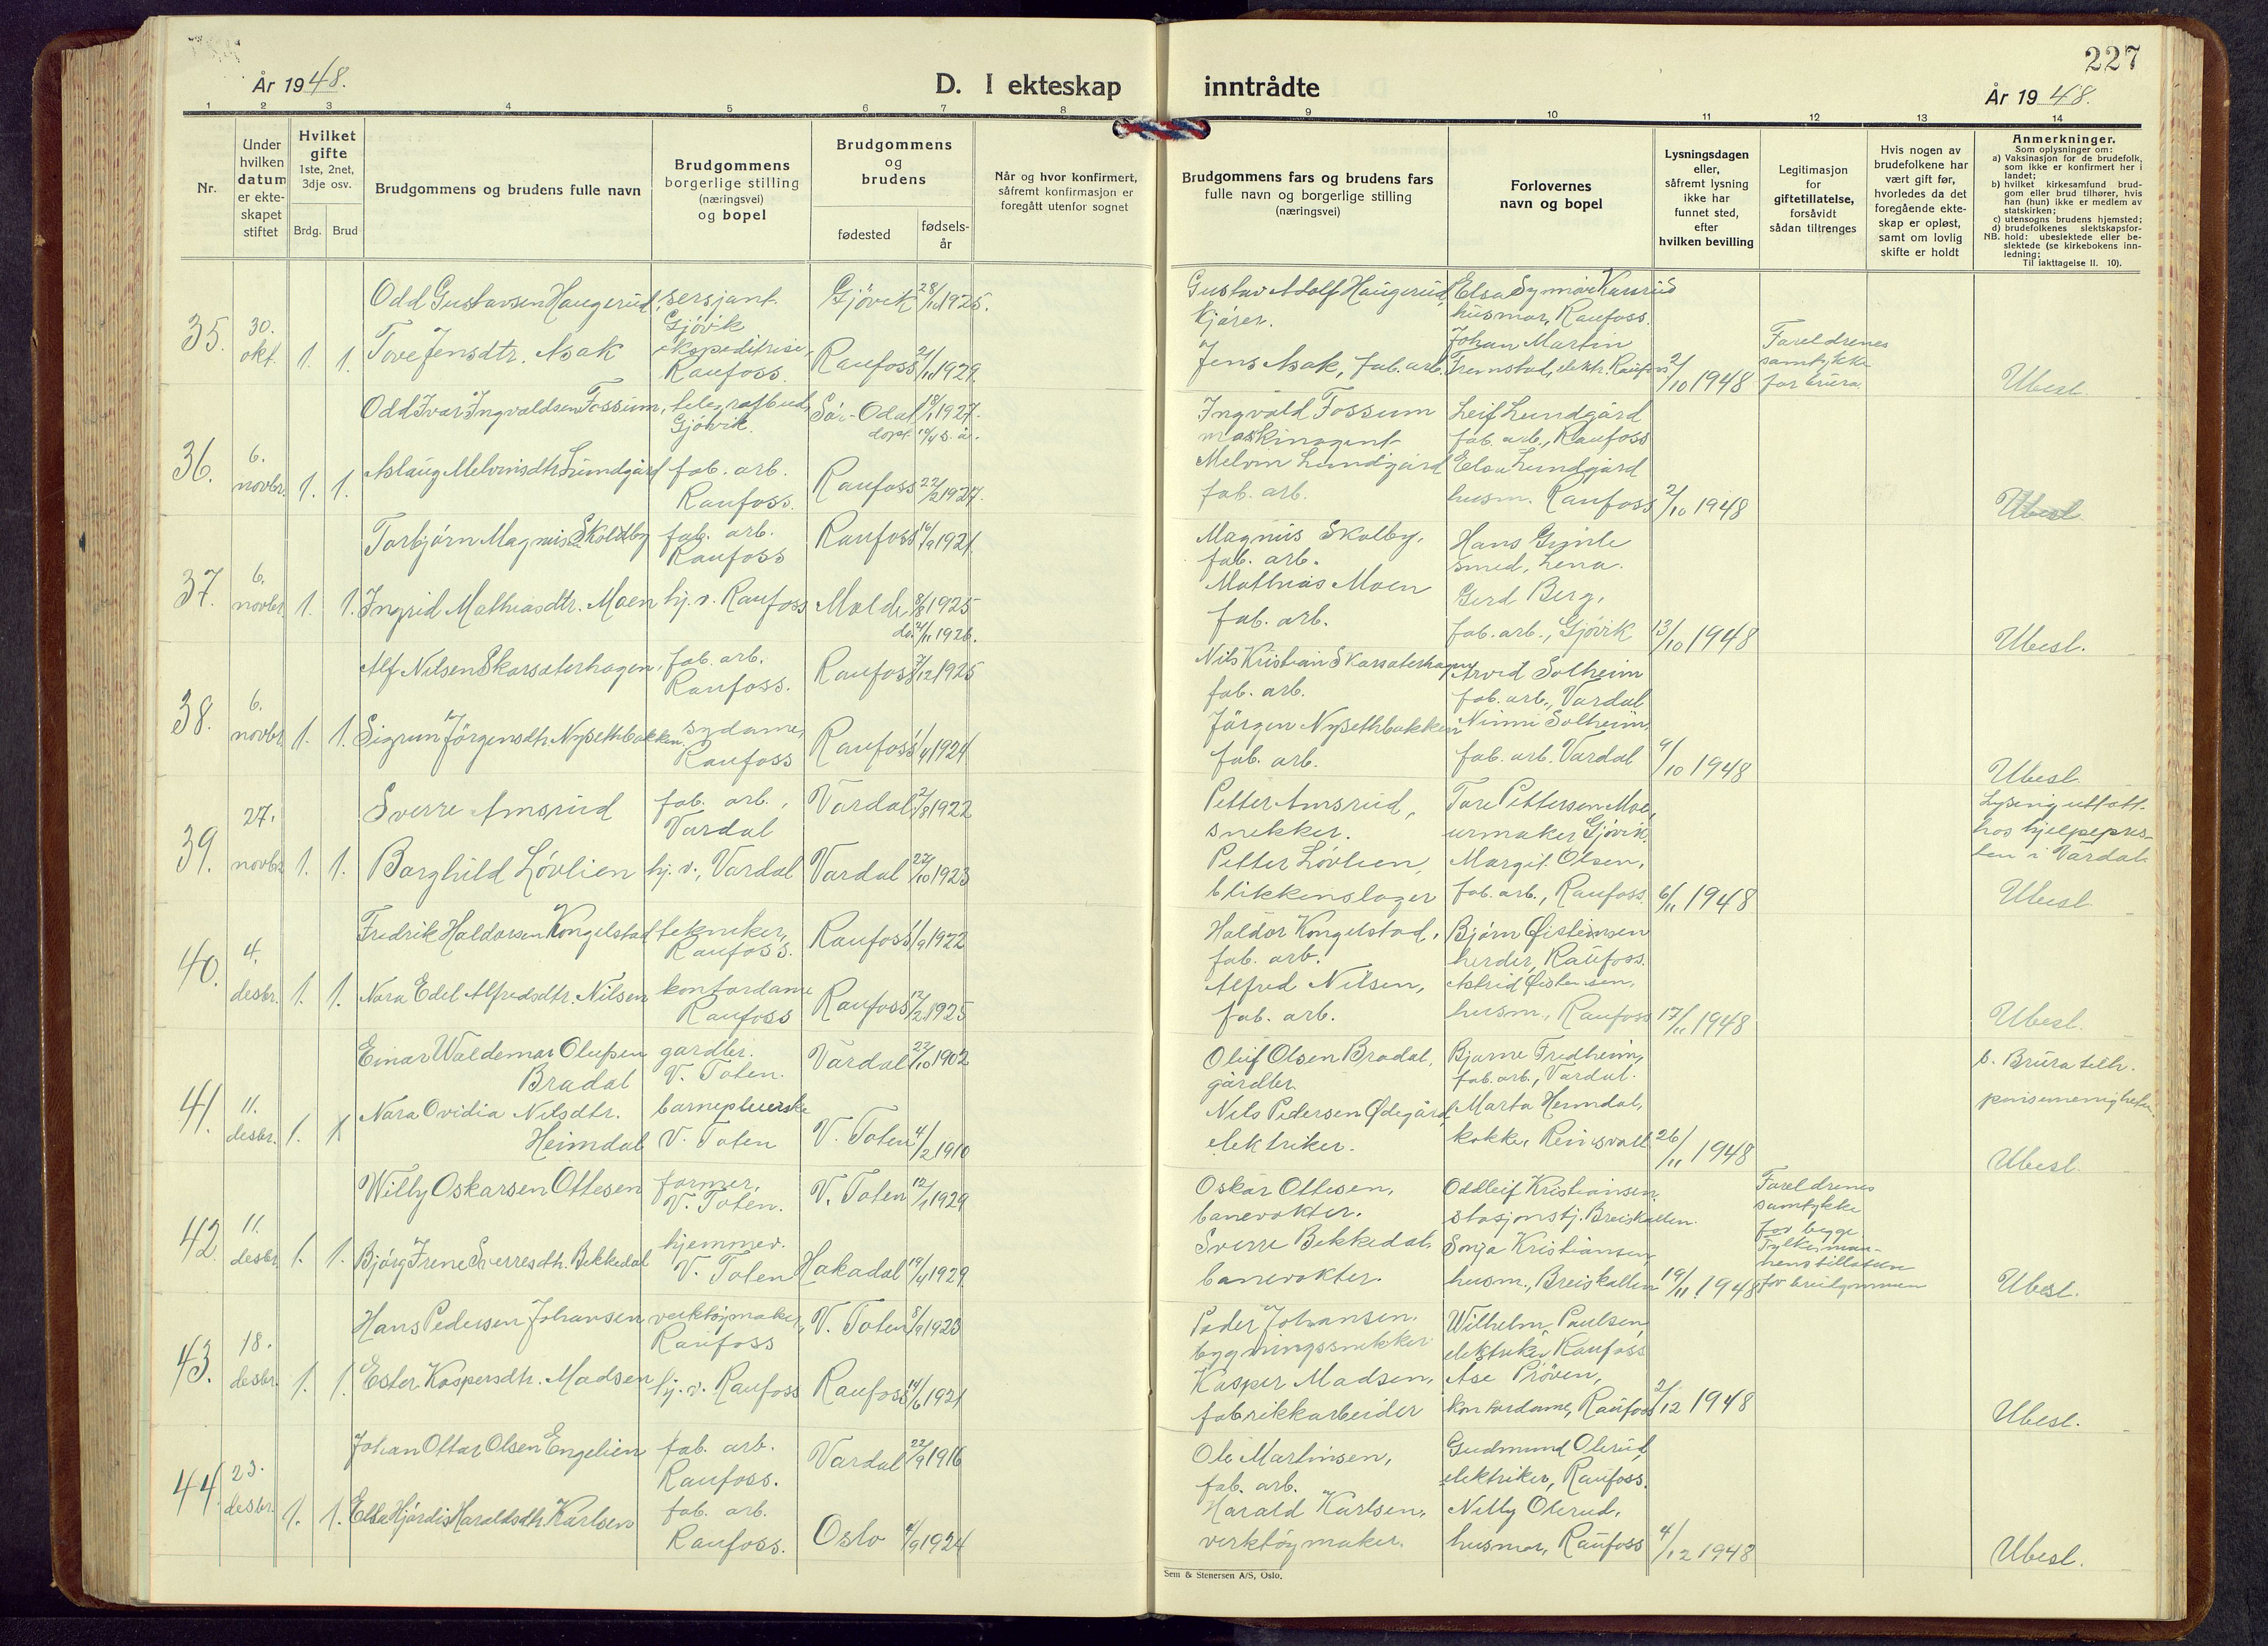 227
År 1948.
D. I ekteskap inntrådte
År 1948.
1 2 3 4 5 6 7 8 9 10 11 12 13 14
Nr.
Under hvilken datum er ekteskapet stiftet
Hvilket gifte 1ste, 2net, 3dje osv.
Brdg. Brud
Brudgommens og brudens fulle navn
Brudgommens borgerlige stilling (næringsvei) og bopel
Brudgommens og brudens
fødested
fødsels-år
Når og hvor konfirmert, såfremt konfirmasjon er foregått utenfor sognet
Brudgommens fars og brudens fars fulle navn og borgerlige stilling (næringsvei)
Forlovernes navn og bopel
Lysningsdagen eller, såfremt lysning ikke har funnet sted, efter hvilken bevilling
Legitimasjon for giftetillatelse, forsåvidt sådan tiltrenges
Hvis nogen av brudefolkene har vært gift før, hvorledes da det foregående ekteskap er opløst, samt om lovlig skifte er holdt
Anmerkninger.
Som oplysninger om:
a) Vaksinasjon for de brudefolk, som ikke er konfirmert her i landet;
b) hvilket kirkesamfund brudgom eller brud tilhører, hvis han (hun) ikke er medlem av statskirken;
c) utensogns brudens hjemsted;
d) brudefolkenes slektskapsforhold: ubeslektede eller beslektede (se kirkebokens innledning;
NB. Til iakttagelse II. 10).
35. 30. okt. 1. 1.
Odd Gustavsen Haugerud, sersjant Gjøvik Gjøvik 28/10 1925.
Gustav Adolf Haugerud, kjører. Elsa Synnøve husmor, Raufoss.
Tove Jensdtr. Asak ekspeditrise, Raufoss. Raufoss 1929.
Jens Asak, fab. arb. Johan Martin Fremstad, elektr. Raufoss 2/10 1948 Foreldrenes samtykke for brura. Ubesl.
36. 6. novbr. 1. 1.
Odd Ivar Ingvaldsen Fossum, telegrafbud, Gjøvik. Sør-Odal 1927. døpt s. år.
Ingvald Fossum maskinagent Leif Lundgård fab. arb., Raufoss
Aslaug Melvinsdtr. Lundgård fab. arb. Raufoss. Raufoss 22/2 1927.
Melvin Lundgård fab. arb. Elsa Lundgård husm. Raufoss 2/10 1948 Ubesl.
37. 6. novbr. 1. 1.
Torbjørn Magnussen Skolby fab. arb. Raufoss Raufoss 16/9 1921
Magnus Skolby, fab. arb. Hans Grimle smed, Lena.
Ingrid Mathiasdtr. Moen hj. v. Raufoss Molde 8/8 1925 1926.
Mathias Moen fab. arb. Gerd Berg, fab. arb., Gjøvik 13/10 1948 Ubesl.
38. 6. novbr. 1. 1.
Alf Nilsen Skarsæterhagen, fab. arb. Raufoss. Raufoss 7/12 1925
Nils Kristian Skarsæterhagen fab. arb. Arvid Solheim fab. arb., Vardal
Sigrun Jørgensdtr. Nysethbakken, sydame, Raufoss Raufoss 1/4 1924
Jørgen Nysethbakken fab. arb. Ninni Solheim, fab. arb. Vardal 9/10 1948 Ubesl.
39. 27. novbr. 1. 1.
Sverre Amsrud fab. arb., Vardal Vardal 2/8 1922
Petter Amsrud, snekker. Tore Pettersen Moe, urmaker, Gjøvik. Lysing uttatt hos hjelpepresten i Vardal.
Borghild Løvlien hj. v., Vardal Vardal 27/10 1923
Petter Løvlien, blikkenslager Margit Olsen, fab. arb., Raufoss. 6/11 1948 Ubesl.
40. 4. desbr. 1. 1.
Fredrik Haldorsen Kongelstad tekniker, Raufoss. Raufoss 1/9 1922
Haldor Kongelstad, fab. arb. Bjørn Øistensen herder, Raufoss.
Nora Edel Alfredsdtr. Nilsen kontordame Raufoss Raufoss 12/2 1925
Alfred Nilsen, fab. arb. Astrid Øistensen, husm., Raufoss 17/11 1948 Ubesl.
41. 11. desbr. 1. 1
Einar Waldemar Olufsen Bradal gardbr. V. Toten. Vardal 23/10 1902
Oluf Olsen Bradal, gårdbr. Bjarne Fredheim, fab. arb., Vardal. b. Brura tilh. pinsemenigheten.
Nora Ovidia Nilsdtr. Heimdal barnepleierske V. Toten V. Toten 4/2 1910
Nils Pedersen Ødegård, elektriker. Marta Heimdal, kokke, Reinsvoll 26/11 1948 Ubesl.
42. 11. desbr. 1. 1.
Willy Oskarsen Ottesen former, V. Toten. V. Toten 12/1 1929
Oskar Ottesen, banevokter. Oddleif Kristiansen, stasjonstj. Breiskallen. Foreldrenes samtykke for begge. Fylkesmannens tillatelse for brudgommen
Bjørg Irene Sverresdtr. Bekkedal hjemmev. V. Toten Hakadal 19/4 1929.
Sverre Bekkedal, banevokter. Sonja Kristiansen, husm., Breiskallen 19/11 1948 Ubesl.
43. 18. desbr. 1. 1.
Hans Pedersen Johansen, verktøymaker, Raufoss V. Toten 8/9 1923
Peder Johansen, bygningssnekker Wilhelm Paulsen, elektriker, Raufoss
Ester Kaspersdtr. Madsen hj. v. Raufoss Raufoss 14/6 1921
Kasper Madsen, fabrikkarbeider Åse Prøven, kontordame, Raufoss 2/12 1948 Ubesl.
44. 23. desbr. 1. 1.
Johan Ottar Olsen Engelien fab. arb. Raufoss. Vardal 22/9 1916
Ole Martinsen, fab. arb. Gudmund Olerud, elektriker, Raufoss.
Elsa Hjørdis Haraldsdtr. Karlsen fab. arb. Raufoss. Oslo 1924
Harald Karlsen, verktøymaker. Nelly Olerud, husmor, Raufoss 4/12 1948 Ubesl.
Sem & Stenersen A/S, Oslo.